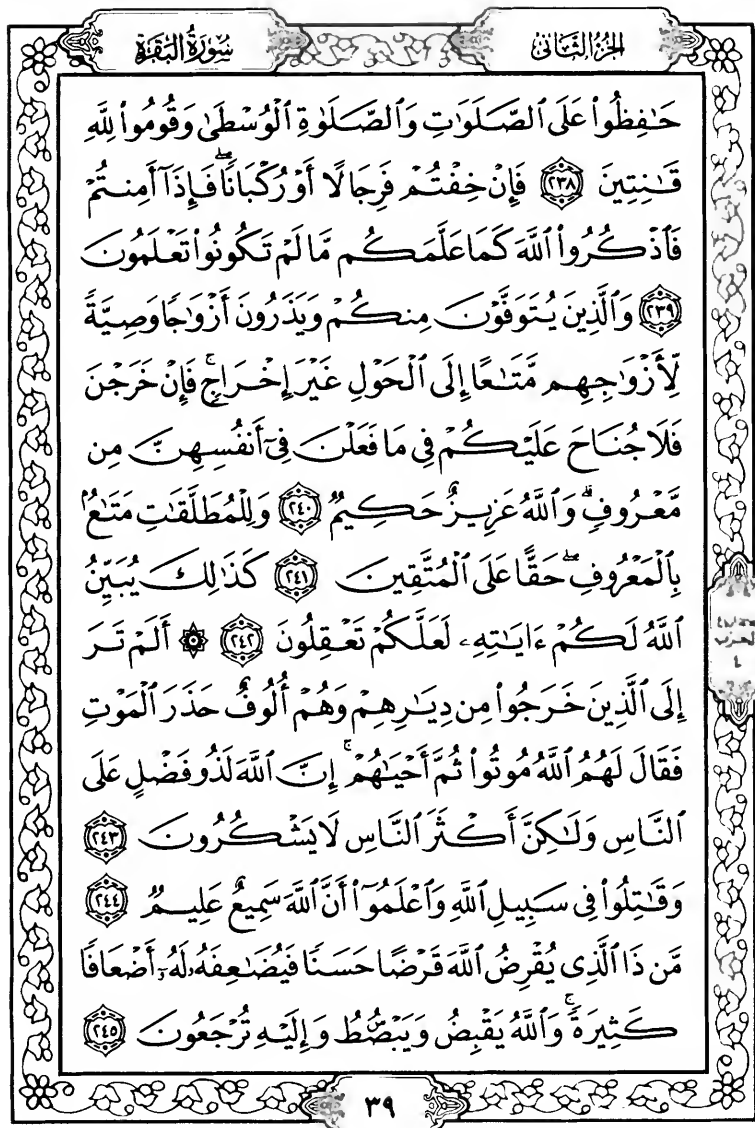 الجزء الثاني
سورة البقرة
حَـٰفِظُوا۟ عَلَى ٱلصَّلَوَٰتِ وَٱلصَّلَوٰةِ ٱلْوُسْطَىٰ وَقُومُوا۟ لِلَّهِ
قَـٰنِتِينَ ٢٣٨ فَإِنْ خِفْتُمْ فَرِجَالًا أَوْ رُكْبَانًا ۖ فَإِذَآ أَمِنتُمْ
فَٱذْكُرُوا۟ ٱللَّهَ كَمَا عَلَّمَكُم مَّا لَمْ تَكُونُوا۟ تَعْلَمُونَ
٢٣٩ وَٱلَّذِينَ يُتَوَفَّوْنَ مِنكُمْ وَيَذَرُونَ أَزْوَٰجًا وَصِيَّةً
لِّأَزْوَٰجِهِم مَّتَـٰعًا إِلَى ٱلْحَوْلِ غَيْرَ إِخْرَاجٍ ۚ فَإِنْ خَرَجْنَ
فَلَا جُنَاحَ عَلَيْكُمْ فِى مَا فَعَلْنَ فِىٓ أَنفُسِهِنَّ مِن
مَّعْرُوفٍ ۗ وَٱللَّهُ عَزِيزٌ حَكِيمٌ ٢٤٠ وَلِلْمُطَلَّقَـٰتِ مَتَـٰعٌۢ
بِٱلْمَعْرُوفِ ۖ حَقًّا عَلَى ٱلْمُتَّقِينَ ٢٤١ كَذَٰلِكَ يُبَيِّنُ
ٱللَّهُ لَكُمْ ءَايَـٰتِهِۦ لَعَلَّكُمْ تَعْقِلُونَ ٢٤٢ ۞ أَلَمْ تَرَ
إِلَى ٱلَّذِينَ خَرَجُوا۟ مِن دِيَـٰرِهِمْ وَهُمْ أُلُوفٌ حَذَرَ ٱلْمَوْتِ
فَقَالَ لَهُمُ ٱللَّهُ مُوتُوا۟ ثُمَّ أَحْيَـٰهُمْ ۚ إِنَّ ٱللَّهَ لَذُو فَضْلٍ عَلَى
ٱلنَّاسِ وَلَـٰكِنَّ أَكْثَرَ ٱلنَّاسِ لَا يَشْكُرُونَ ٢٤٣
وَقَـٰتِلُوا۟ فِى سَبِيلِ ٱللَّهِ وَٱعْلَمُوٓا۟ أَنَّ ٱللَّهَ سَمِيعٌ عَلِيمٌ ٢٤٤
مَّن ذَا ٱلَّذِى يُقْرِضُ ٱللَّهَ قَرْضًا حَسَنًا فَيُضَـٰعِفَهُۥ لَهُۥٓ أَضْعَافًا
كَثِيرَةً ۚ وَٱللَّهُ يَقْبِضُ وَيَبْصُۜطُ وَإِلَيْهِ تُرْجَعُونَ ٢٤٥
الحزب
٤
٣٩